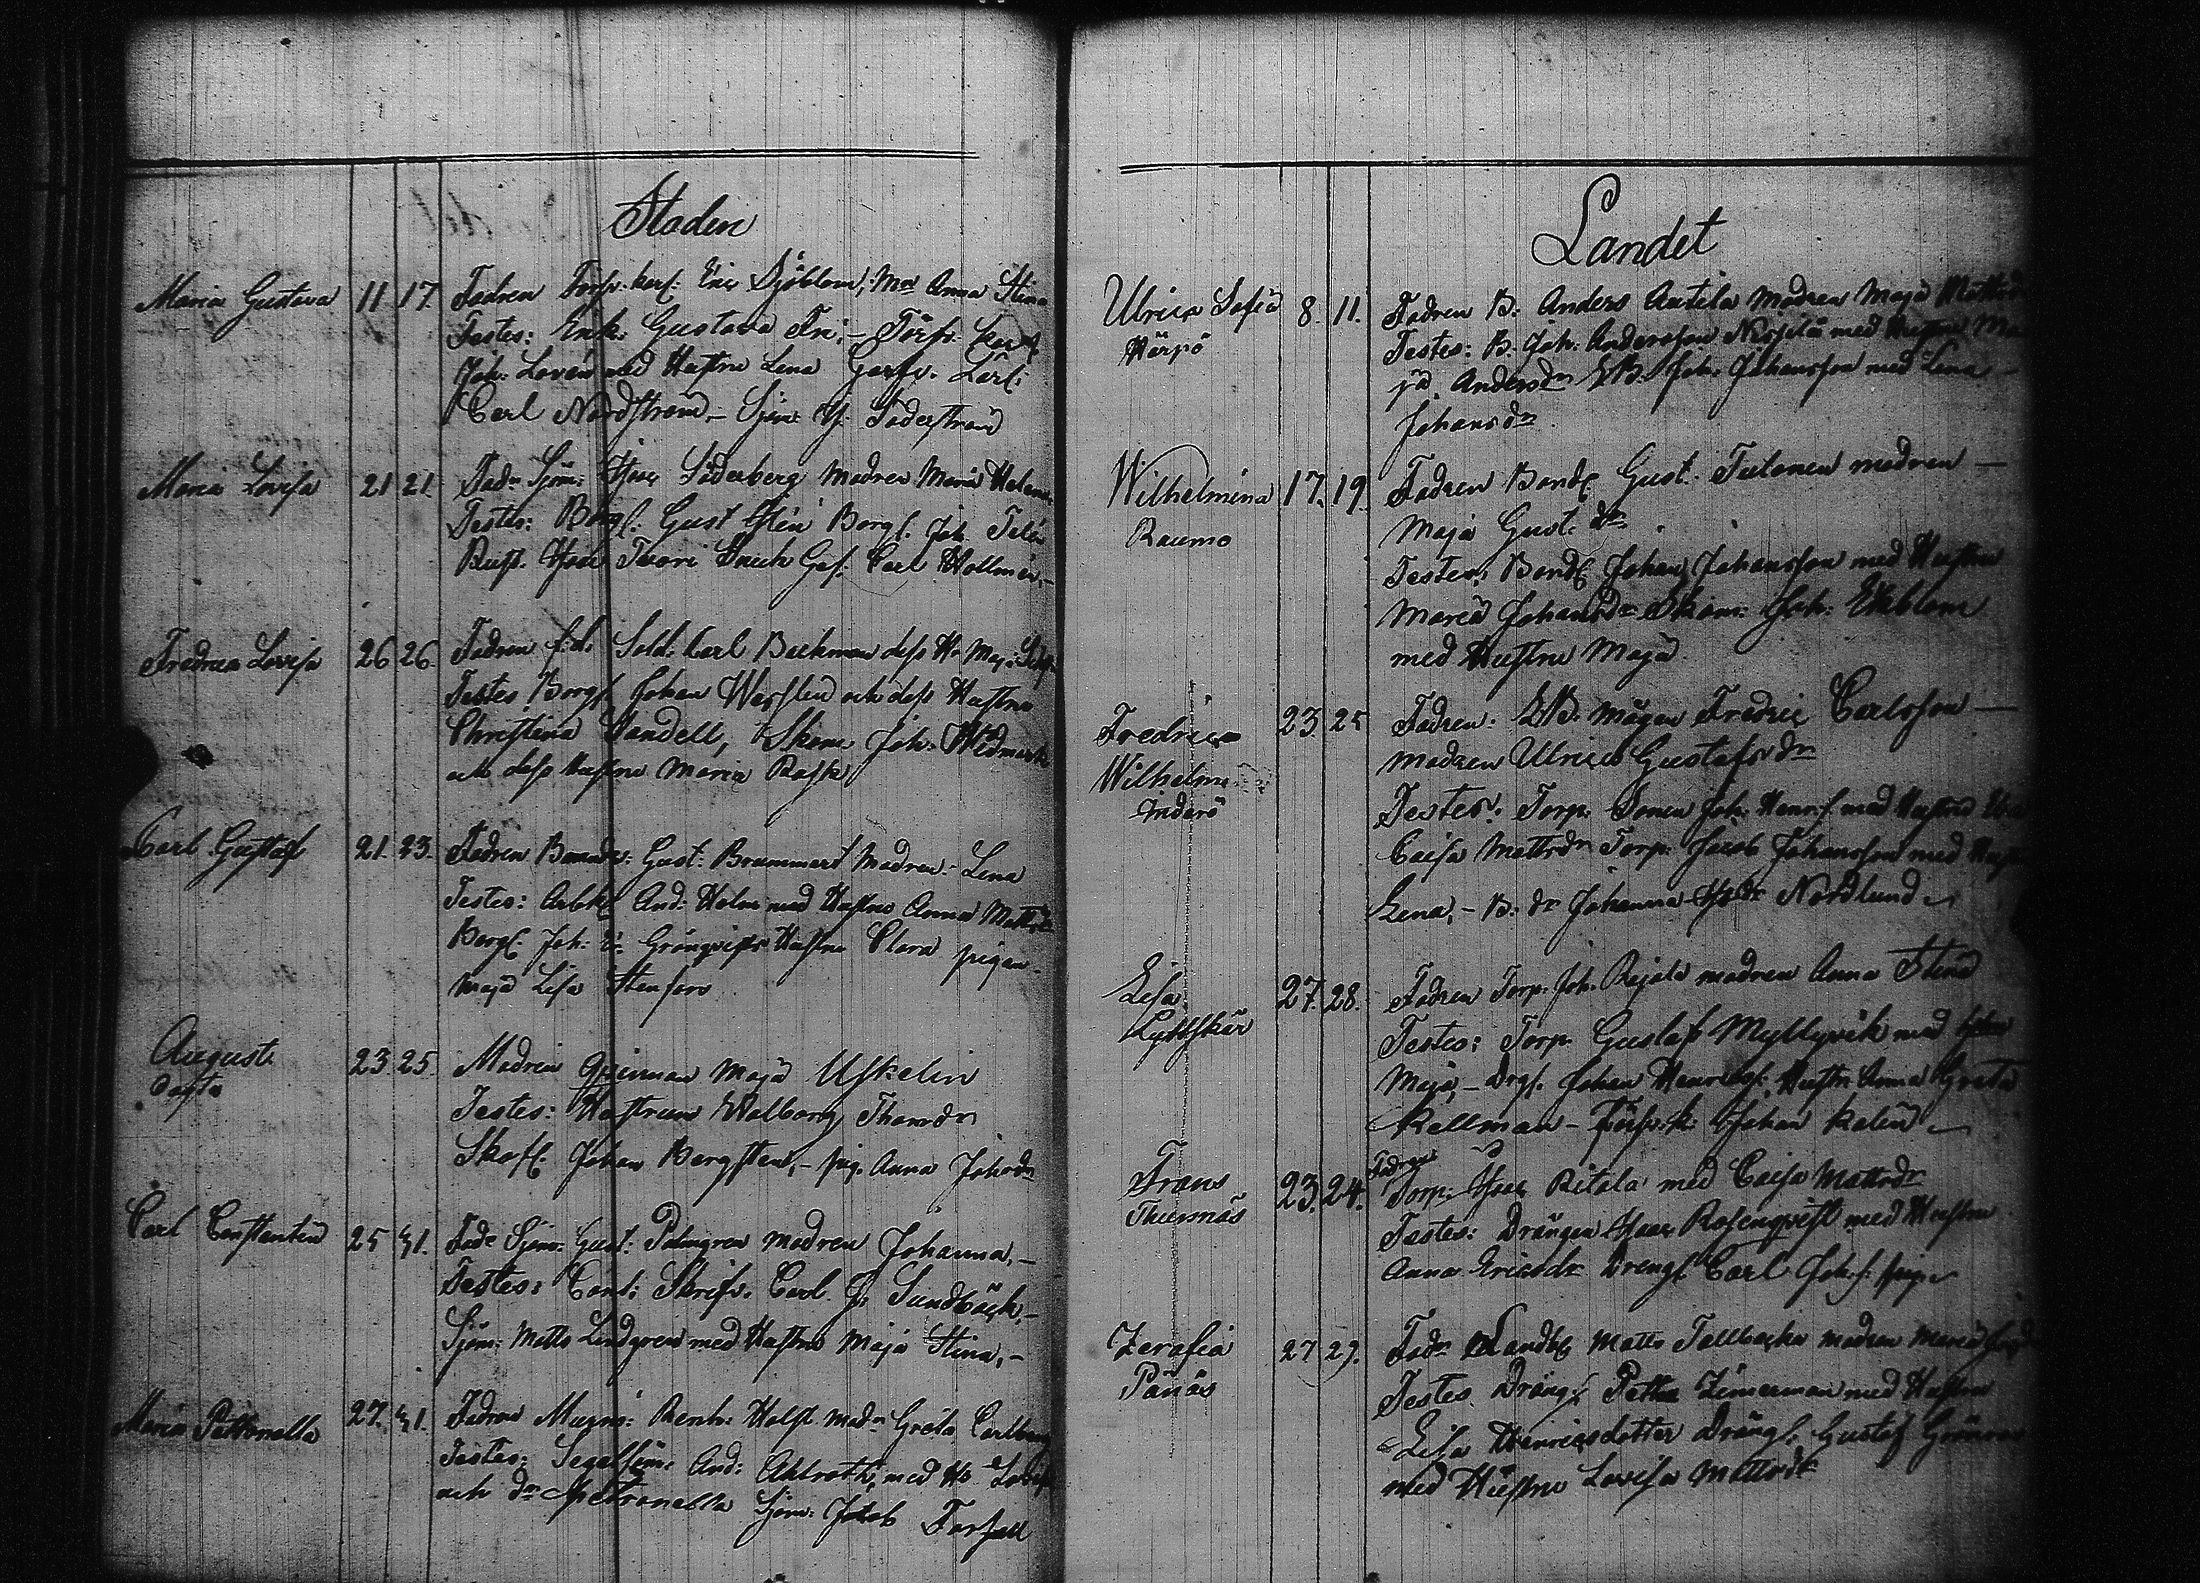 Staden
Maria Gustava 11 17 Fadren Försv. karl: Eric Sjöblom, Mn Anna Stina
Testes: Enk: Gustava Fri, – Förs. karl
Joh: Lovén med Hustru Lena Garfv. Lärl:
Carl Nordström, – Sjöm: Söderström
Maria Lovisa 21 21. Fadn Sjöm: Isac Söderberg Madren Maria Helena
Testes: Borgs: Gust Joh. Telén
Isac Tuori Snick Ges: Carl Hollmén, –
Fredrica Lovisa 26 26. Fadren f.d. Sold: Carl Backman dess Hu Maja
Testes Borgs Johan Wasslin och dess Hustru
Christina Sandell, Skom. Joh: Widmark
och dess Hustru Maria Rask
Carl Gustaf 21. 23. Fadren Gust: Brummert Madren: Lena
Testes: Arbk And: Holm med Hustru Anna Mattsdr
Borgs: Joh: Er: Grönqvists Hustru Clara pigan
Maja Lisa Stenfors
August 23 25. Madren Maja Uskelin
oäkta Testes: Hustrun Walborg Thomdr
Johan Bergsten, – pig. Anna Johsdr
Carl Constantin 25 31. Fadr Sjöm: Gust: Palmgren modren Johanna, –
Testes: Cont: Skrifv. Carl J: Sundbäck, –
Sjöm: Matts Lindgren med Hustru Maja Stina, –
Maria Pettronella 27. 31. Fadren Murm: Benh: Holst modn Greta Carlberg
Testes: Segelsöm: And: Ahlroth, med Hu Lovisa
och dr Petronella Sjöm: Jacob Forsell
Landet
Ulrica Sofia 8. 11. Fadren B: Anders Antila modren Maja Mattsdr
Härpö Testes: B. Joh: Andersson med Hustru Ma
ja Andersdr Joh: Johansson med Lena –
Johansdr
Wilhelmina 17. 19. Fadren Bond Gust. Tulonen modren –
Raumo Maja Gust: dr
Testes: Bond Johan Johansson med Hustru
Maria Johansdr Skom: Joh: Ekblom
med Hustru Maja
Fredrica 23. 25 Fadren: mågen Fredric Carlsson –
Wilhelm modren Ulrica Gustafsdr
Inderö Testes: Torp: Sonen Joh: Henrs: med Hustru
Caisa Mattsdr Torp: Jacob Johansson med Hustru
Lena, – B: dr Johanna Nordlund
Lisa 27. 28. Fadren Torp: Joh. Rajala modren Anna Stina
Lyttskär Testes: Torp. Gustaf Myllyvik med
Maja, – Drgs. Johan Henricss. Hustr. Anna Greta
Kellman – Förs. k: Johan Kalén
Frans 23. 24. Fadren Torp: Isac Ritala med Caisa Mattsdr
Thurnäs Testes: Drängen Isac Rosenqvist med Hustru
Anna Ericsdr Drengs Carl Joh. s. pig
Zerafia 27 29. Fadr Landb Matts Tallbacka modren Maria
Pånäs Testes Dräng: Petter Zimerman med Hustru
Lisa Henricsdotter Drängs. Gustaf Grönroos
med Hustru Lovisa Mattsdr